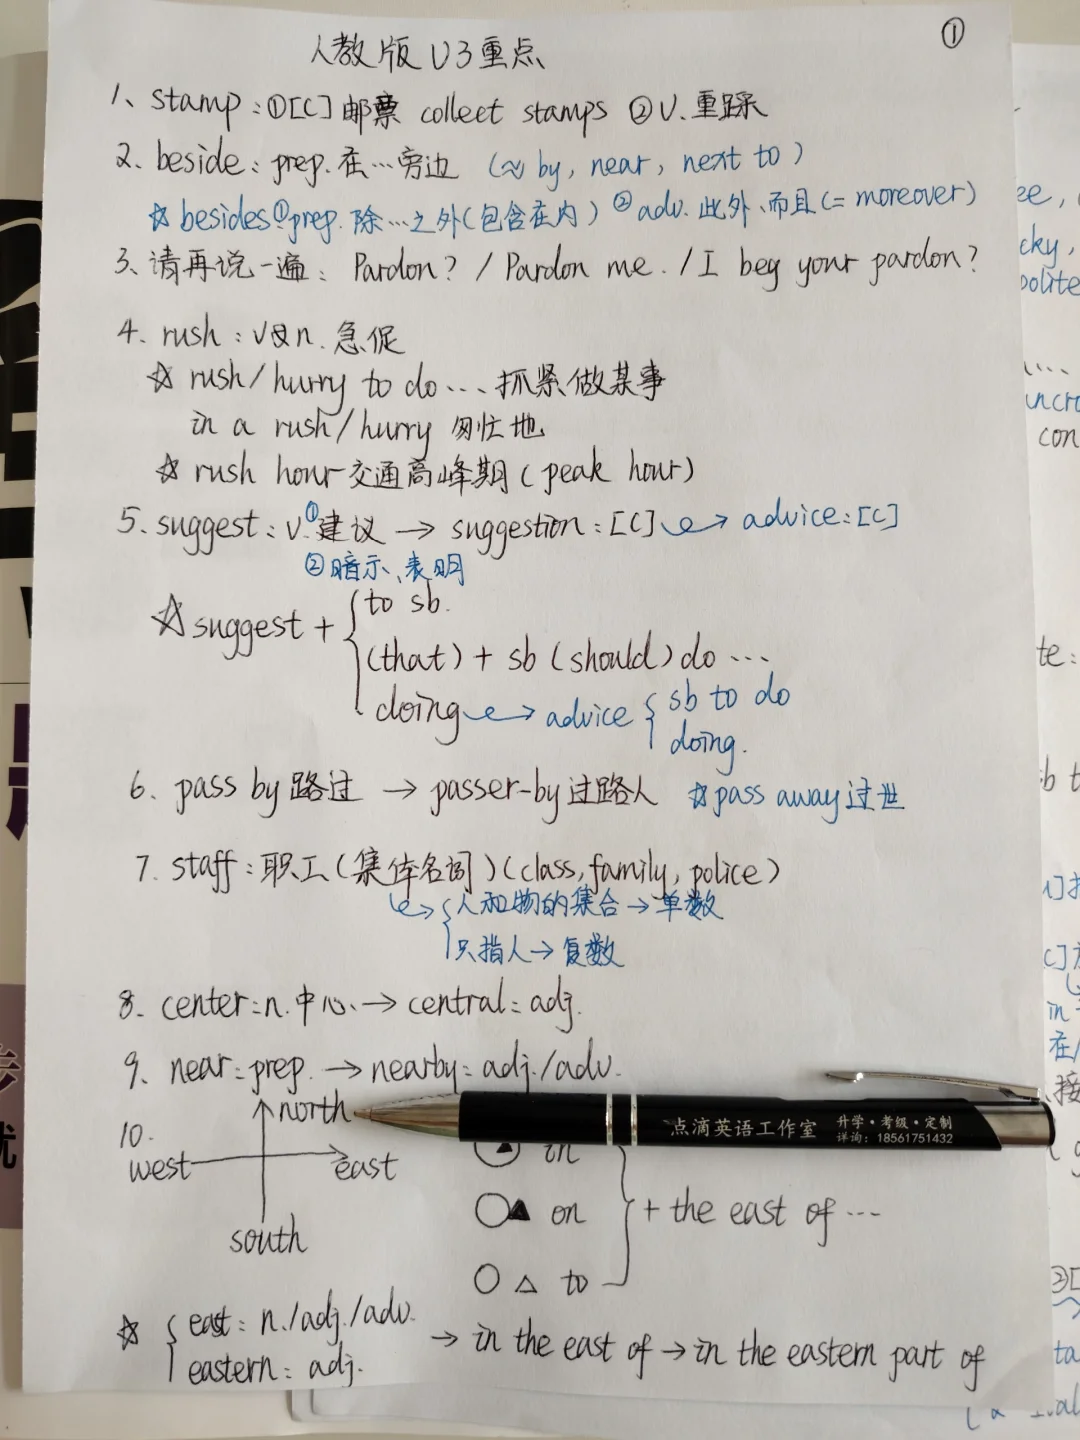 ①
人教版 U3重点
1、stamp:①[C]邮票 collect stamps ②V.重踩
2、beside:prep.在…旁边 (≈ by, near, next to)
☆ besides①prep.除…之外(包含在内) ②adv.此外、而且(= moreover)
3、请再说一遍: Pardon? / Pardon me. / I beg your pardon?
4. rush:v及n.急促
☆ rush/hurry to do…抓紧做某事
in a rush/hurry 匆忙地
☆ rush hour 交通高峰期(peak hour)
5.suggest:v.①建议 → suggestion:[C] → advice:[C]
②暗示、表明
☆suggest + { to sb.
(that) + sb (should) do …
doing → advice { sb to do
doing.
6、pass by 路过 → passer-by 过路人 ☆pass away 过世
7. staff:职工(集体名词)(class, family, police)
→ { 人和物的集合→单数
只指人→复数
8. center:n.中心、→ central:adj.
9、near:prep. → nearby:adj./adv.
north
10.
west
east
south
in
on
to
+ the east of …
☆ { east: n./adj./adv.
eastern: adj.
→ in the east of → in the eastern part of
点滴英语工作室
升学·考级·定制
详询:18561751432